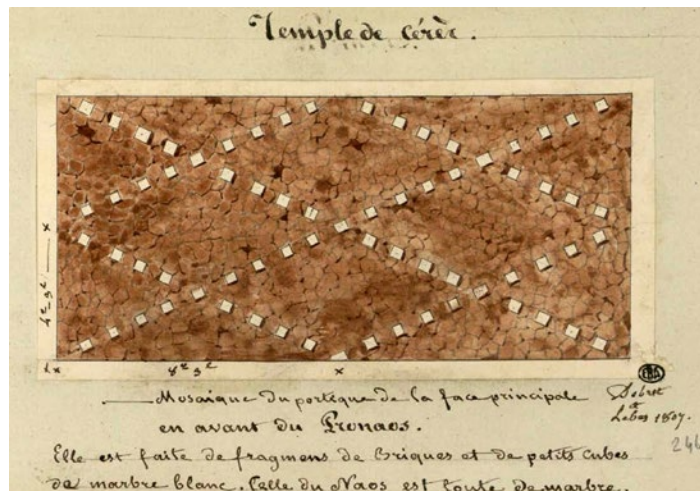 Temple de cérèr.
x
4ᶜ 3ᶜ
x
x
Mosaique du portique de la face principale
en avant du Pronaos.
Debret
et
Lebas 1807.
246
Elle est faite de fragmens de Briques et de petits cubes
de marbre blanc. Celle du Naos est toute de marbre.